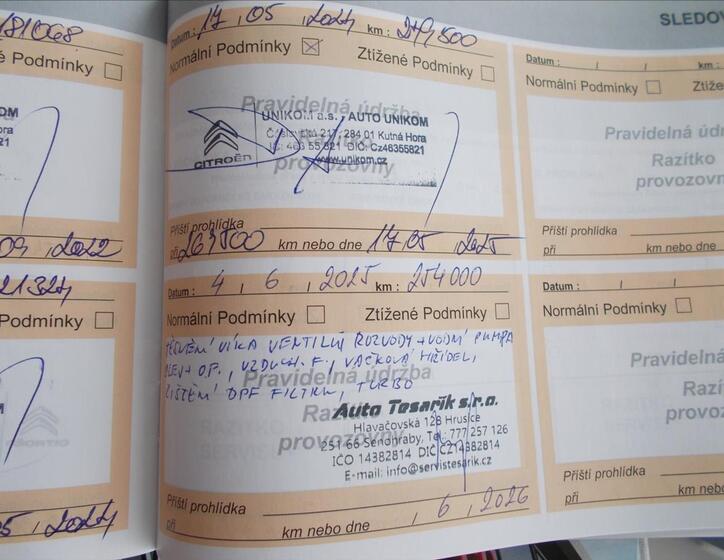 181068
SLEDOV
Datum: 17, 05, 2024 km: 249500
Normální Podmínky Ztížené Podmínky
Pravidelná údržba
Razítko
provozovny
CITROËN
UNIKOM a.s., AUTO UNIKOM
217, 284 01 Kutná Hora
DIČ: Cz46355821
www.unikom.cz
Příští prohlídka
při 263500 km nebo dne 17, 05, 2025
Datum: 4, 6, 2025 km: 254000
Normální Podmínky Ztížené Podmínky
TĚSNĚNÍ VÍKA VENTILŮ, ROZVODY + VODNÍ PUMPA
OLEJ + O.F., VZDUCH. F., VAČKOVÁ HŘÍDEL,
ČIŠTĚNÍ DPF FILTRU, TURBO
Pravidelná údržba
Razítko
provozovny
Auto Tesarik s.r.o.
Hlavačovská 128 Hrusice
251 66 Senohraby, Tel.: 777 257 126
IČO 14382814 DIČ CZ14382814
E-mail: info@servistesarik.cz
Příští prohlídka
při km nebo dne , 6, 2026
Datum: / / km:
Normální Podmínky Ztíže
Pravidelná údr
Razítko
provozovny
Příští prohlídka
při km nebo dne / /
Datum: / / km:
Normální Podmínky Ztíž
Pravidelná údr
Razítko
provozovny
Příští prohlídka
při km nebo dne / /
é Podmínky
, 2022
21324
é Podmínky
05, 2024